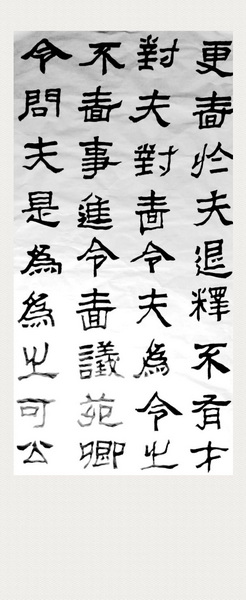 更嗇於夫退釋不有才
對夫對嗇令夫為令㞢
不嗇事進令嗇議苑卿
令問夫是為為㞢可公